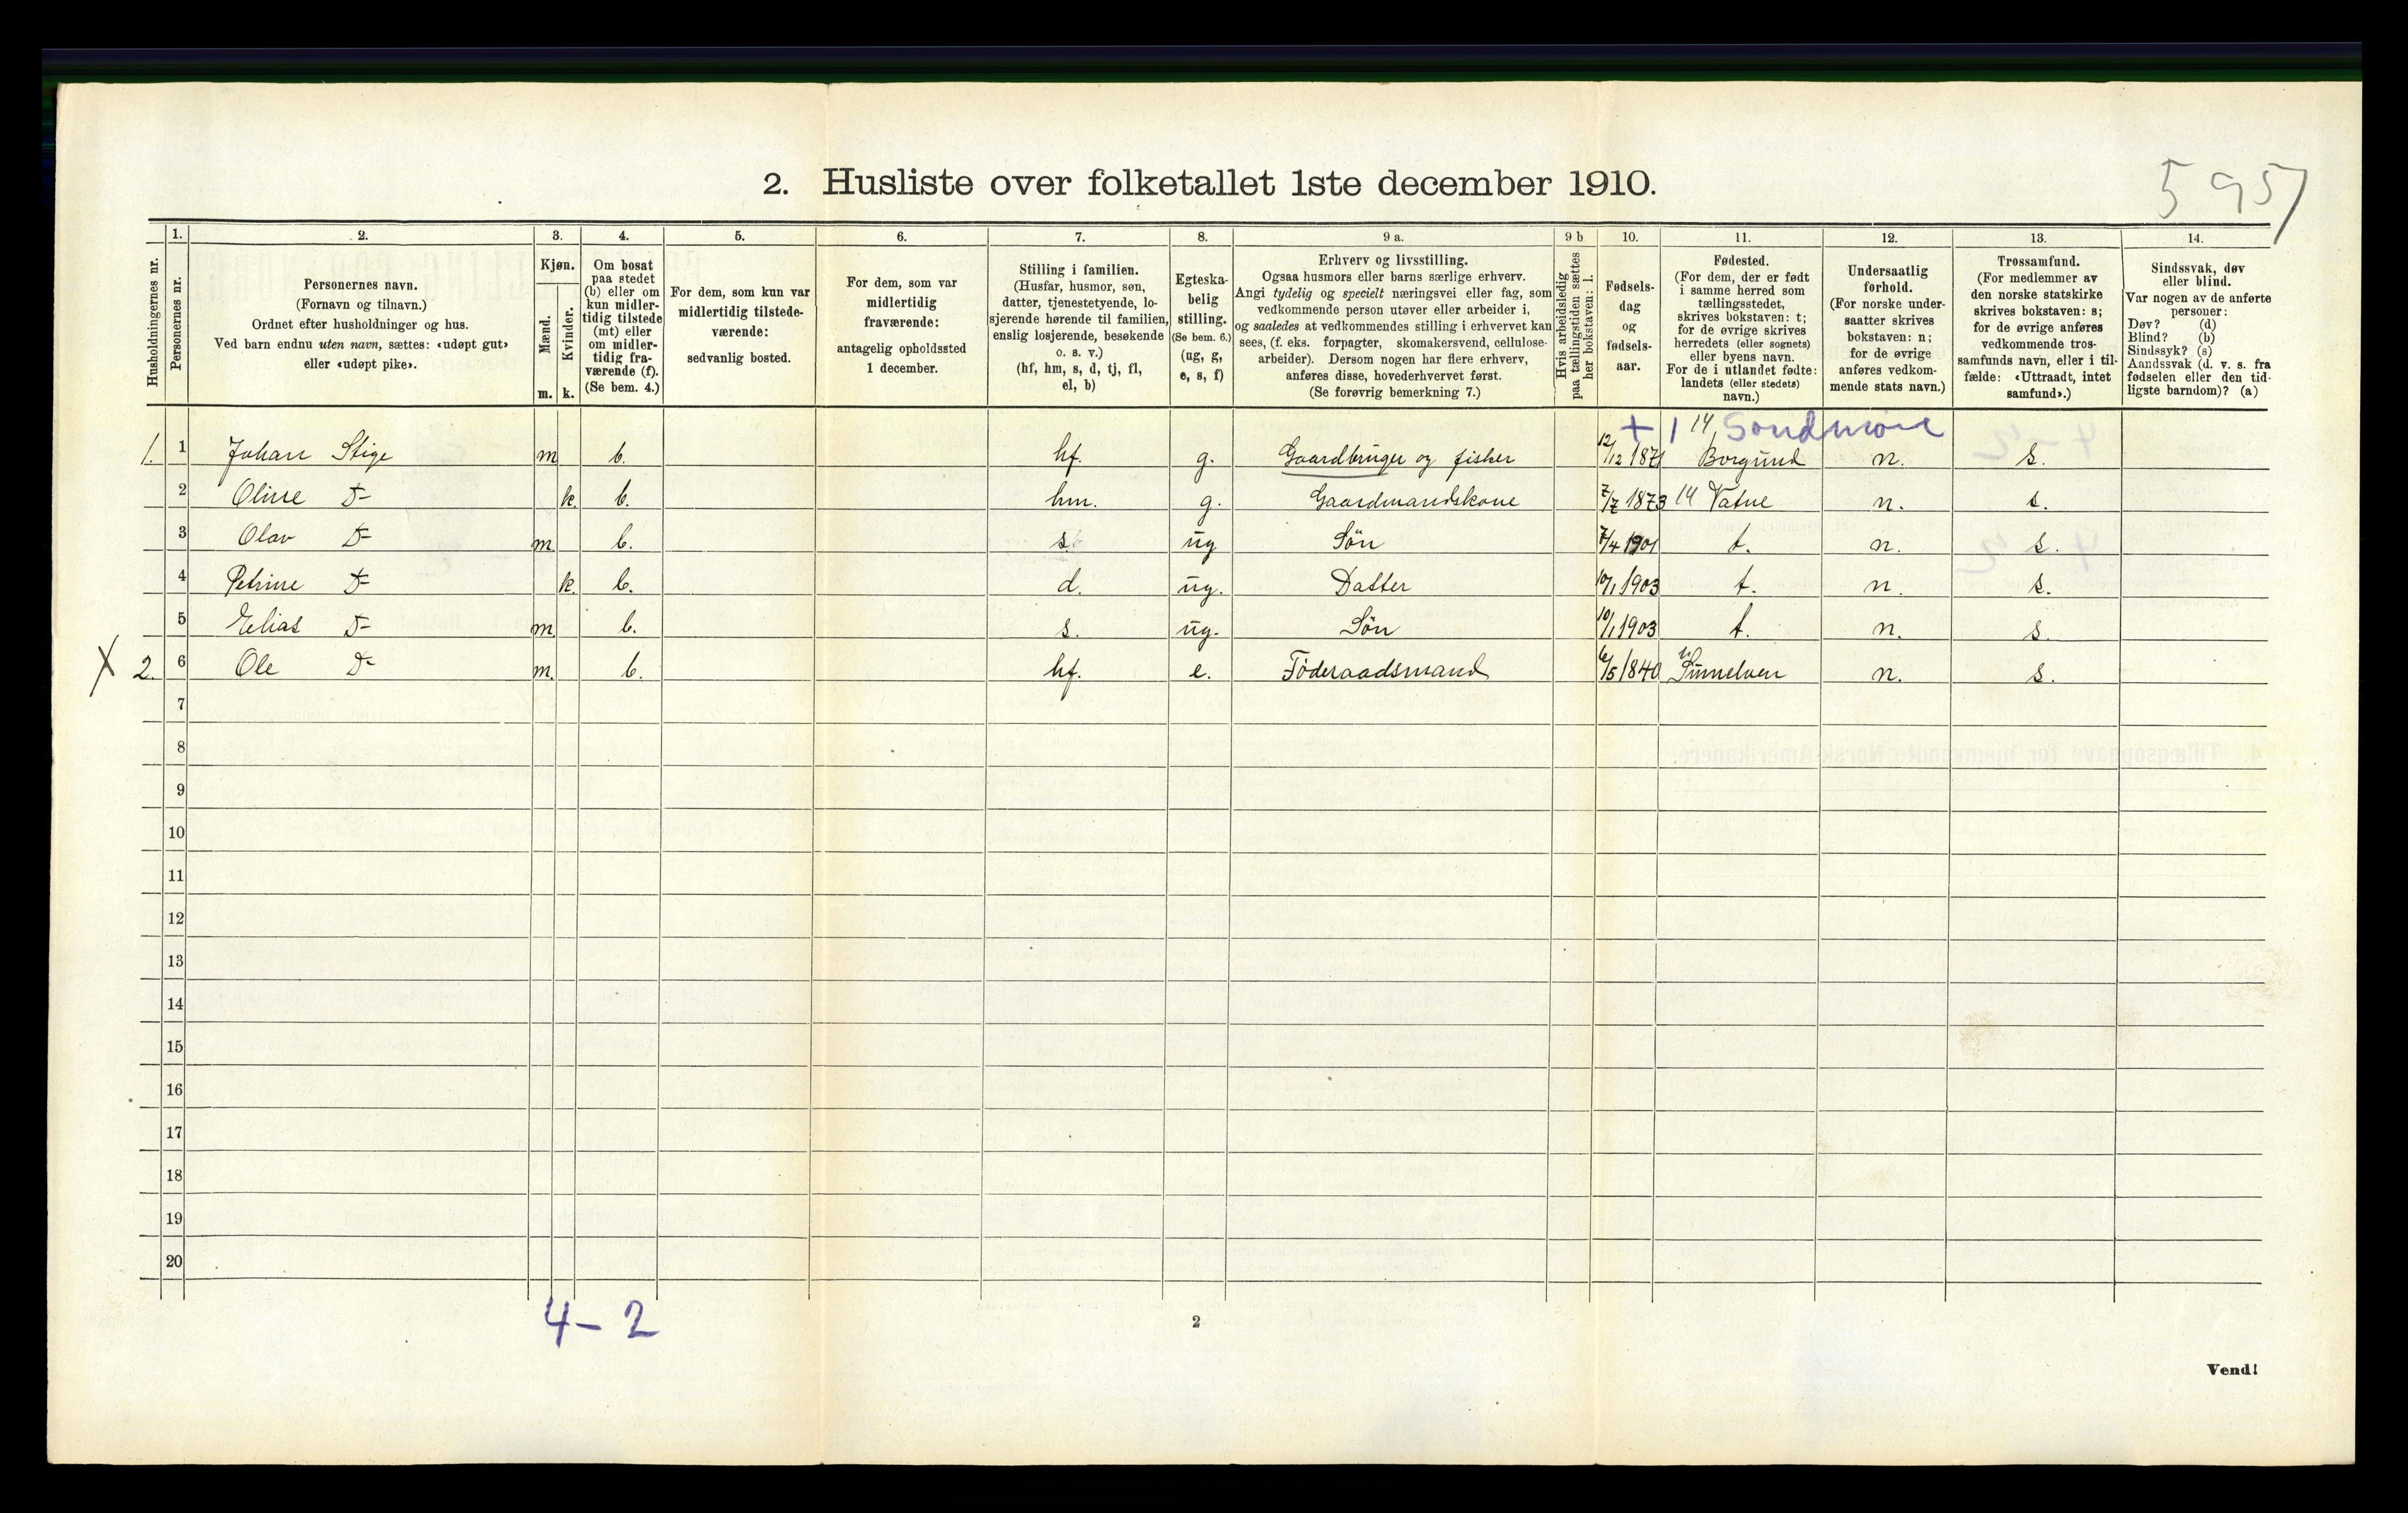 5957
2. Husliste over folketallet 1ste december 1910.
Husholdningernes nr.
1. Personernes nr.
2. Personernes navn. (Fornavn og tilnavn.) Ordnet efter husholdninger og hus. Ved barn endnu uten navn, sættes: «udøpt gut» eller «udøpt pike».
3. Kjøn. Mænd. m. Kvinder. k.
4. Om bosat paa stedet (b) eller om kun midlertidig tilstede (mt) eller om midlertidig fraværende (f). (Se bem. 4.)
5. For dem, som kun var midlertidig tilstedeværende: sedvanlig bosted.
6. For dem, som var midlertidig fraværende: antagelig opholdssted 1 december.
7. Stilling i familien. (Husfar, husmor, søn, datter, tjenestetyende, losjerende hørende til familien, enslig losjerende, besøkende o. s. v.) (hf, hm, s, d, tj, fl, el, b)
8. Egteskabelig stilling. (Se bem. 6.) (ug, g, e, s, f)
9 a. Erhverv og livsstilling. Ogsaa husmors eller barns særlige erhverv. Angi tydelig og specielt næringsvei eller fag, som vedkommende person utøver eller arbeider i, og saaledes at vedkommendes stilling i erhvervet kan sees, (f. eks. forpagter, skomakersvend, cellulosearbeider). Dersom nogen har flere erhverv, anføres disse, hovederhvervet først. (Se forøvrig bemerkning 7.)
9 b Hvis arbeidsledig paa tællingstiden sættes her bokstaven: l.
10. Fødselsdag og fødselsaar.
11. Fødested. (For dem, der er født i samme herred som tællingsstedet, skrives bokstaven: t; for de øvrige skrives herredets (eller sognets) eller byens navn. For de i utlandet fødte: landets (eller stedets) navn.)
12. Undersaatlig forhold. (For norske undersaatter skrives bokstaven: n; for de øvrige anføres vedkommende stats navn.)
13. Trossamfund. (For medlemmer av den norske statskirke skrives bokstaven: s; for de øvrige anføres vedkommende trossamfunds navn, eller i tilfælde: «Uttraadt, intet samfund».)
14. Sindssvak, døv eller blind. Var nogen av de anførte personer: Døv? (d) Blind? (b) Sindssyk? (s) Aandssvak (d. v. s. fra fødselen eller den tidligste barndom)? (a)
+ 1 14 Sondmöre
1. 1 Johan Stige m b. hf. g. Gaardbruger og fisker 12/12 1871 Borgund n. s.
2 Oline D- k. b. hm. g. Gaardmandskone 7/7 1873 14 Vatne n. s.
3 Olav D- m. b. s. ug Søn 7/4 1901 t. n. s.
4 Petrine D- k. b. d. ug. Datter 10/1 1903 t. n. s.
5 Elias D- m b. s. ug. Søn 10/1 1903 t. n. s.
X 2. 6 Ole D- m. b. hf. e. Föderaadsmand 6/5 1840 Sunnelven n. s.
7
8
9
10
11
12
13
14
15
16
17
18
19
20
4 - 2
2
Vend!